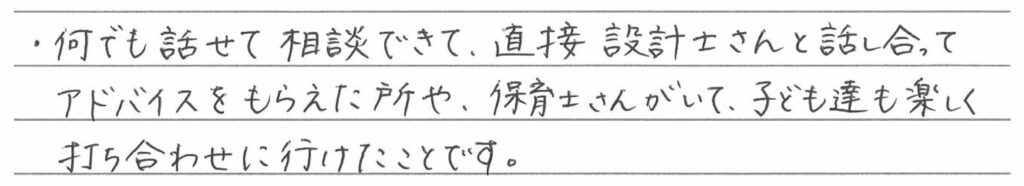 ・何でも話せて相談できて、直接設計士さんと話し合って
アドバイスをもらえた所や、保育士さんがいて、子ども達も楽しく
打ち合わせに行けたことです。